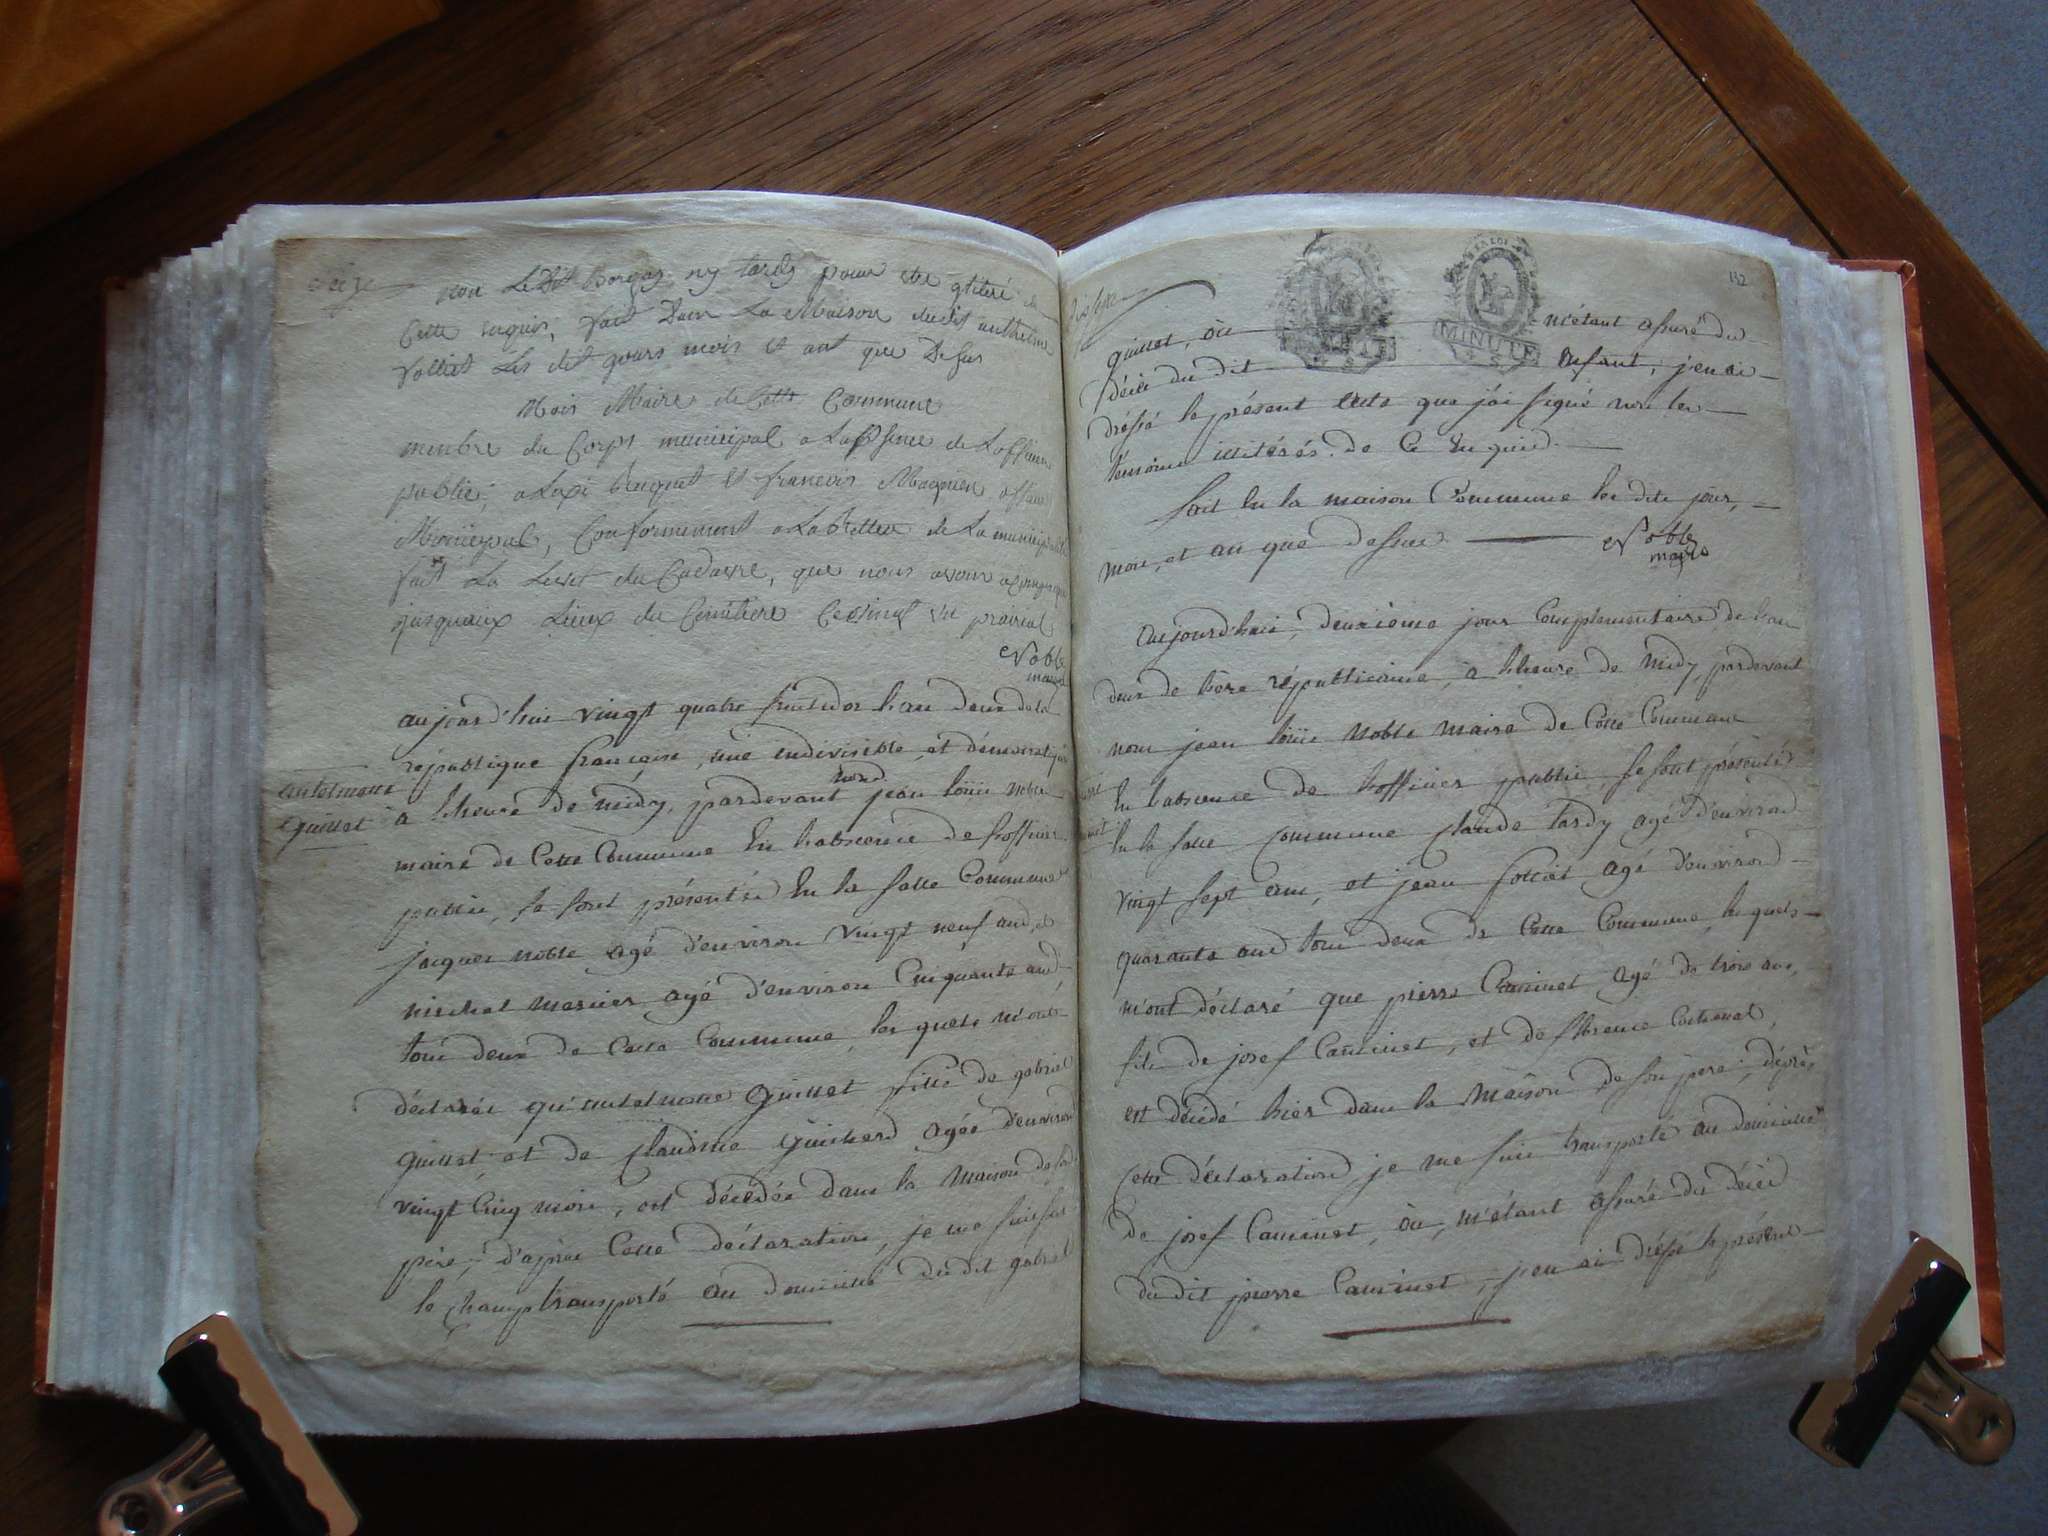 seize
non Ledit Borgey ny tardy pour etre
Cette Vait Dans La Maison dudit anthelme
volliet Les dit jours mois et ant que Desus
Nois Maire de Cette Commune
menbre du Corps municipal a Labsence de Loffissie
public, a buquet et francois Magnien offisié
Municipal, Conformement a La lettre de La municipalité
Vait La Levet du Cadavre, que nous avons
jusquaux Lieux du Cemitiere Ce vingt prairial
Noble
maire
aujourd'hui vingt quatre fructidor l'an deux de la
république françoise, une indivisible, et démocratique
nous
antelmette
Guillet
à l'heure de midy, pardevant jean loüis noble
maire de Cette Commune En l'abscence de l'officier
public, se sont présentés En la salle Commune
jacques noble agé d'environ vingt neuf ans, et
michel mernier agé d'environ Cinquante ans
tous deux de Cette Commune, les quels m'ont
déclarés qu'antelmette Guillet fille de gabriel
Guillet, et de claudine Guichard agée d'environ
vingt Cinq mois, est décédée dans la maison de son
père, d'après Cette déclaration, je me suis sur
le champ transporté au domicile du dit gabriel
132
dixsept
LA LOI
MINUTE
4 S
guillet, où m'étant assuré du
décès du dit enfant, j'en ai
dréssé le présent acte que j'ai signé non les
témoins illitérés. de Ce Enquis.
fait En la maison Commune les dits jour,
mois, et an que dessus. Noble
maire
aujourd'hui, deuxième jour Complementaire de l'an
deux de l'ère républicaine, à l'heure de midy, pardevant
nous jean loüis noble maire de Cette Commune
En l'abscence de l'officier public, se sont présentés
En la salle commune claude tardy agé d'environ
vingt sept ans, et jean folliet agé d'environ
quarante ans tous deux de Cette Commune, les quels
m'ont déclaré que pierre Caminet agé de trois ans,
fils de josef Caminet, et de florence
est décédé hier dans la maison de son pere, d'après
Cette déclaration, je me suis transporté au domicile
de josef Caminet, où, m'étant assuré du décès
du dit pierre Caminet, j'en ai dressé le présent